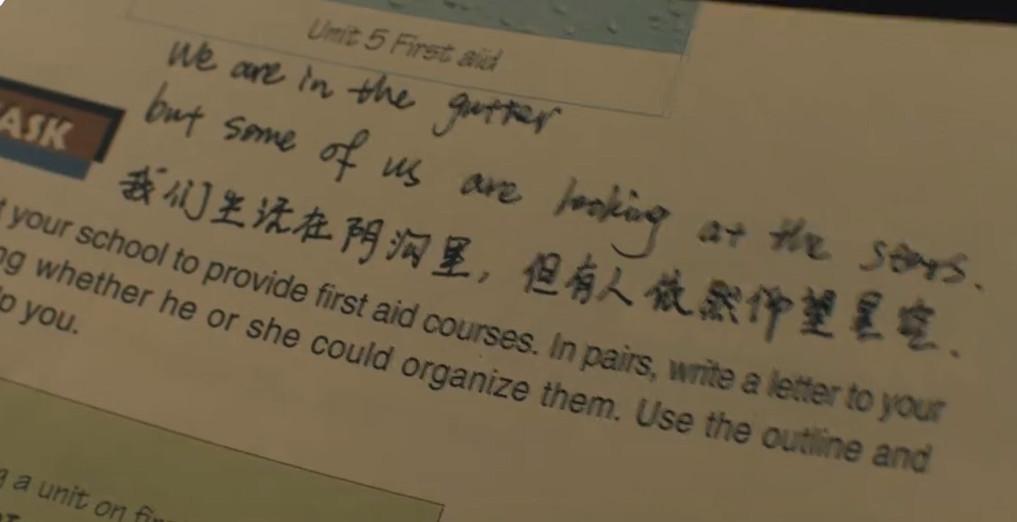 Unit 5 First aid
We are in the gutter
but some of us are looking at the stars.
ASK
我们生活在阴沟里，但有人依然仰望星空.
your school to provide first aid courses. In pairs, write a letter to your
whether he or she could organize them. Use the outline and
you.
a unit on